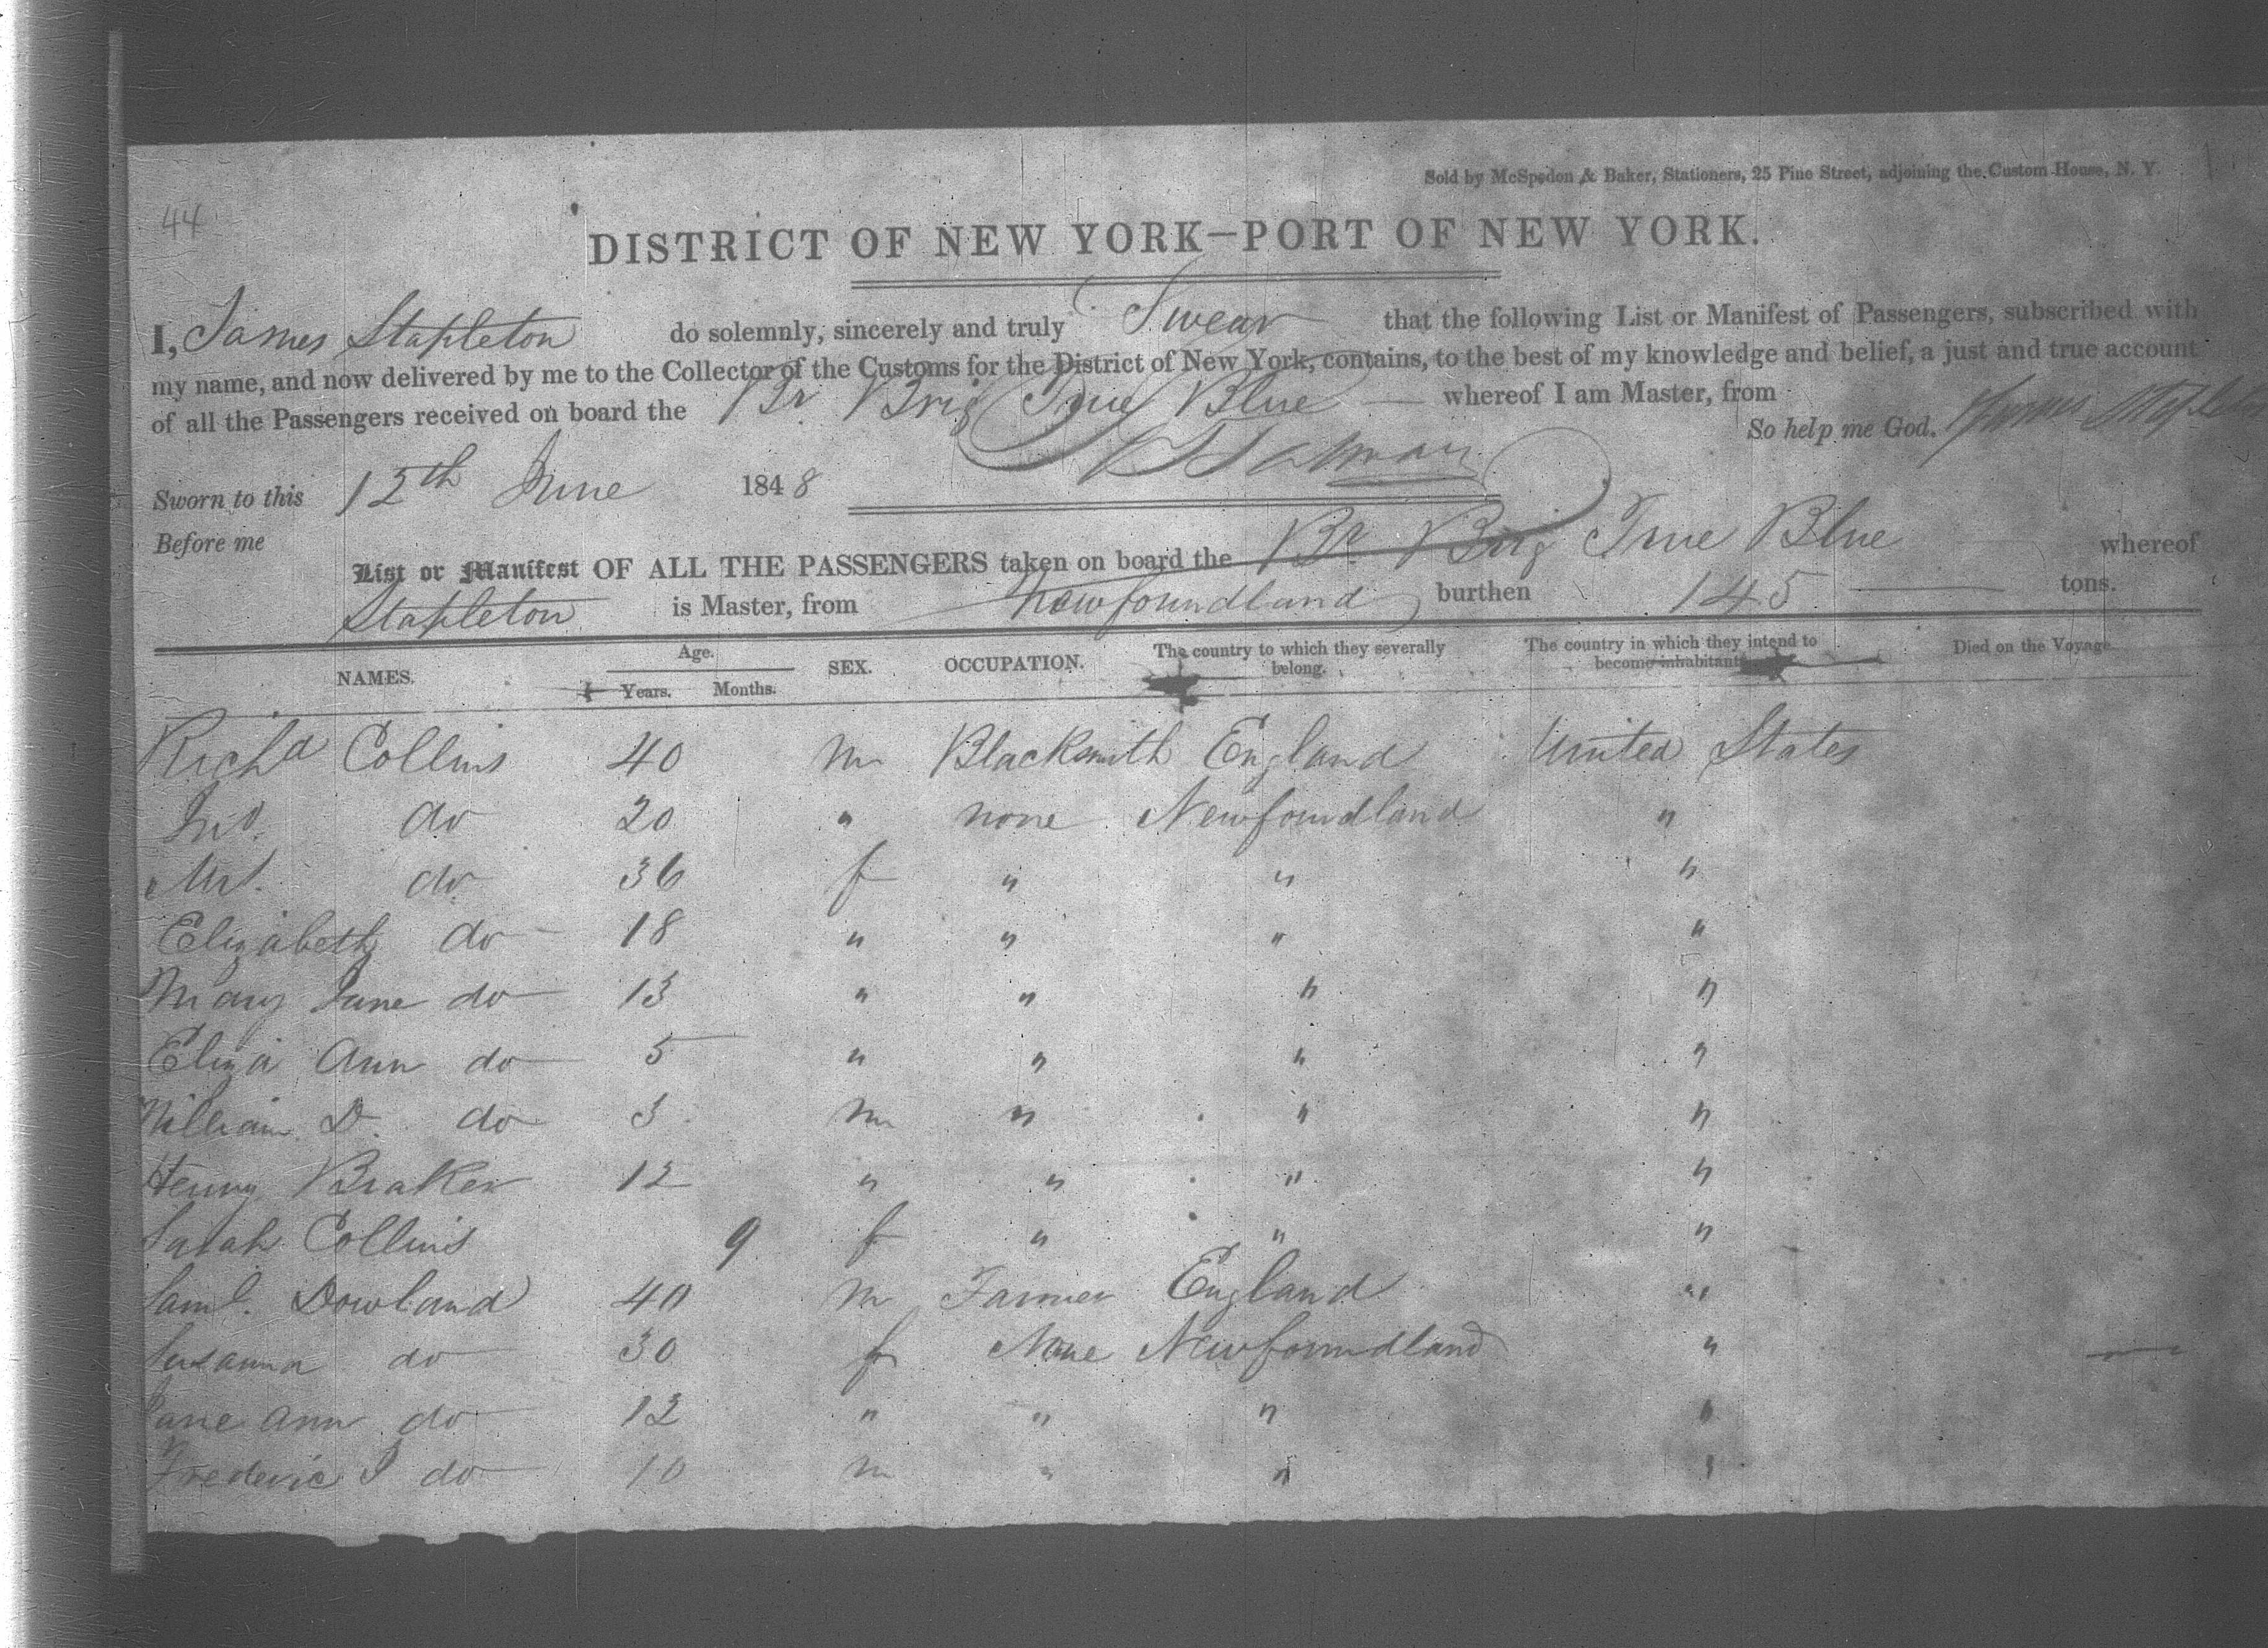 Sold by McSpedon & Baker, Stationers, 25 Pine Street, adjoining the Custom House, N. Y.
44
DISTRICT OF NEW YORK—PORT OF NEW YORK.
I, James Stapleton do solemnly, sincerely and truly Swear that the following List or Manifest of Passengers, subscribed with
my name, and now delivered by me to the Collector of the Customs for the District of New York, contains, to the best of my knowledge and belief, a just and true account
of all the Passengers received on board the Br Brig True Blue — whereof I am Master, from
So help me God. James Stapleton
Sworn to this 12th June 1848
Before me
List or Manifest OF ALL THE PASSENGERS taken on board the Br Brig True Blue whereof
Stapleton is Master, from Newfoundland burthen 145 tons.
NAMES. Age. Years. Months. SEX. OCCUPATION. The country to which they severally belong. The country in which they intend to become inhabitants Died on the Voyage.
Richd Collins 40 m Blacksmith England United States
Jno. do 20 " none Newfoundland "
Mrs. do 36 f " " "
Elizabeth do 18 " " " "
Mary Jane do 13 " " " "
Eliza Ann do 5 " " " "
William D. do 3 m " " "
Henry Braker 12 " " " "
Sarah Collins 9 f " " "
Saml. Dowland 40 m Farmer England "
Susanna do 30 f None Newfoundland "
Jane Ann do 12 " " " "
Frederic J do 10 m " " "